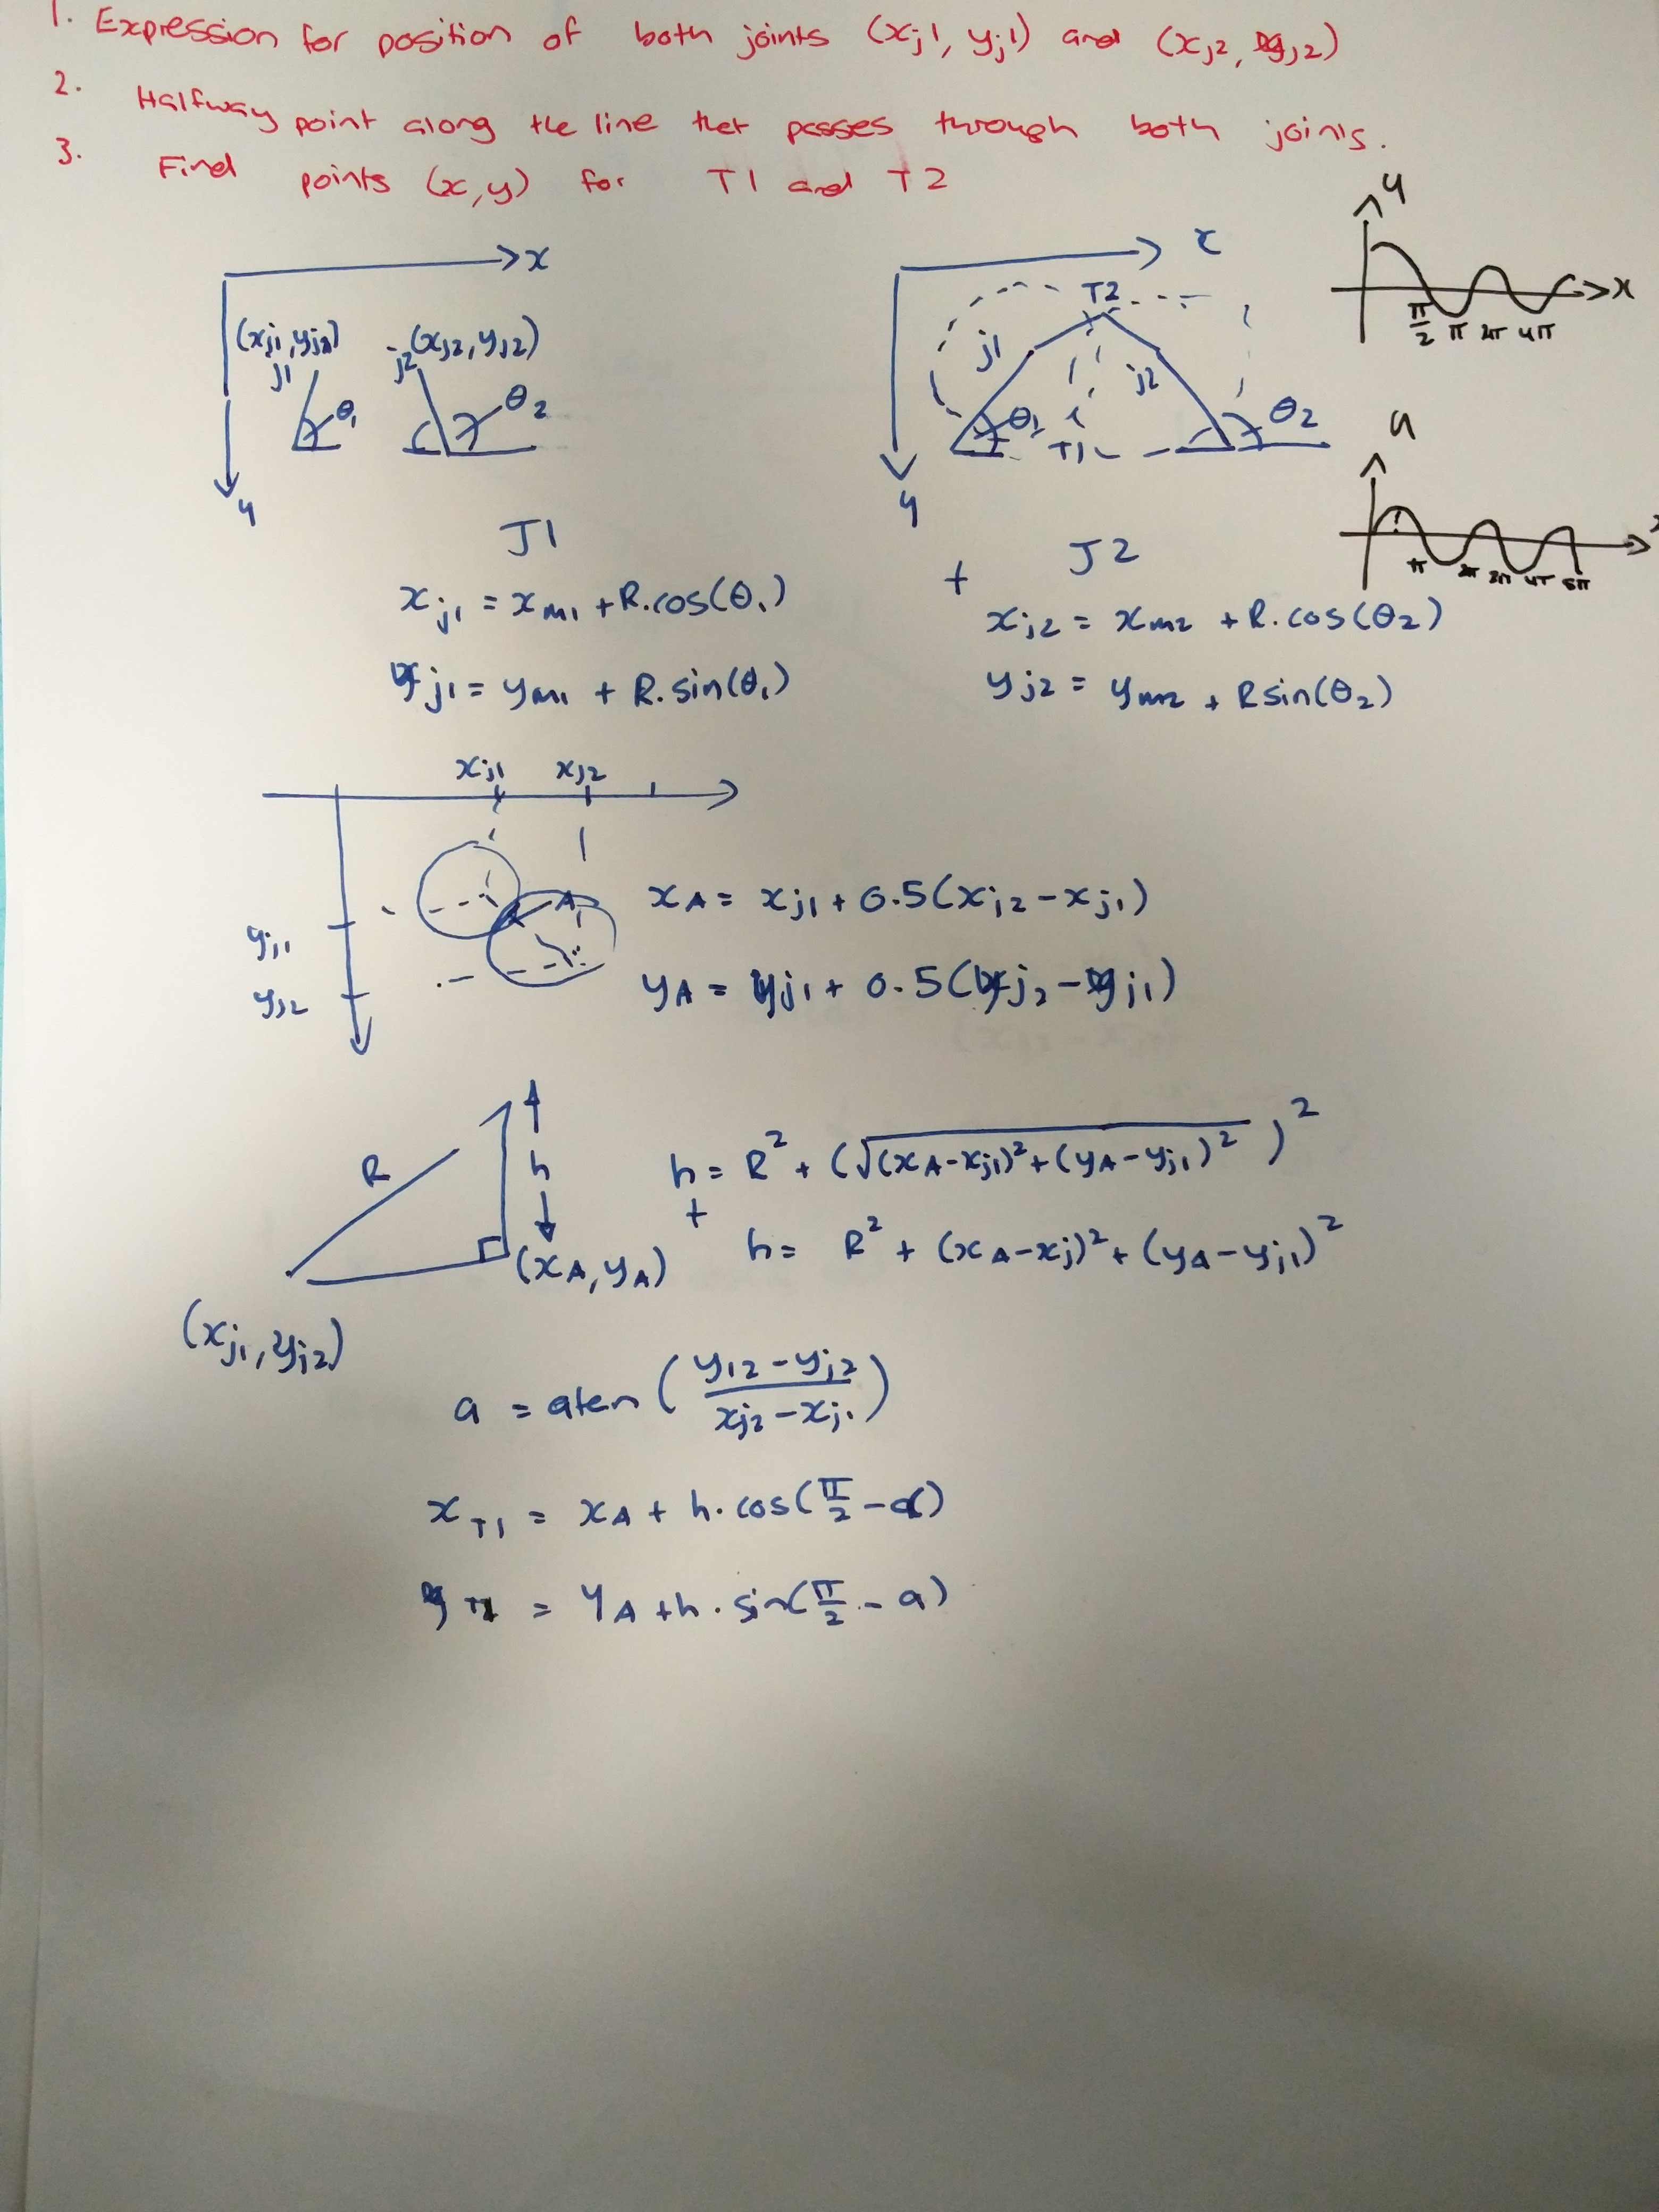 1. Expression for position of both joints (xj1, yj1) and (xj2, yj2)
2. Halfway point along the line that passes through both joints.
3. Find points (x,y) for T1 and T2
y
x
π/2 π 2π 4π
x
(xj1, yj2) j2 (xj2, yj2)
j1
θ1 θ2
y
x
T2
j1 j2
θ1 T1 θ2
y
a
π 2π 3π 4π 5π
J1
xj1 = xm1 + R.cos(θ1)
yj1 = ym1 + R.sin(θ1)
+ J2
xj2 = xm2 + R.cos(θ2)
yj2 = ym2 + Rsin(θ2)
xj1 xj2
A
yj1
yj2
xA = xj1 + 0.5(xj2 - xj1)
yA = yj1 + 0.5(yj2 - yj1)
R h
(xA, yA)
(xj1, yj2)
h = R² + (√(xA-xj1)² + (yA-yj1)²)²
+
h = R² + (xA-xj)² + (yA-yj1)²
a = atan (yj2-yj2 / xj2-xj1)
xT1 = xA + h.cos(π/2 - a)
yT1 = yA + h.sin(π/2 - a)